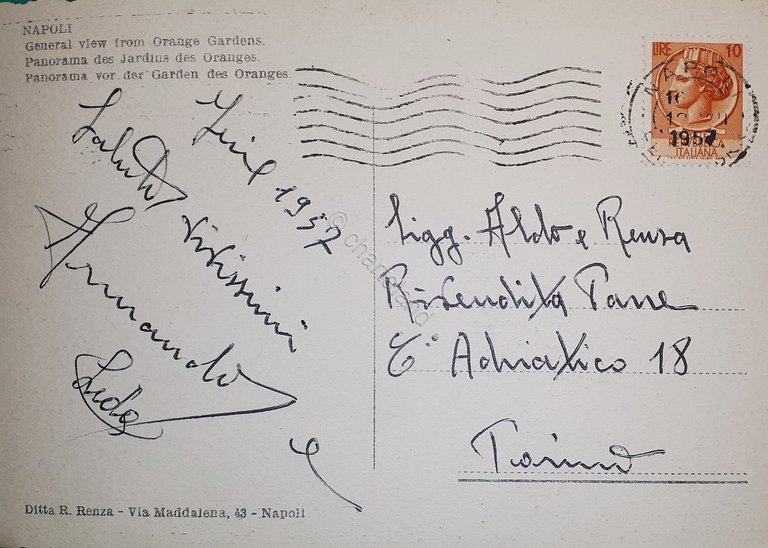 NAPOLI
General view from Orange Gardens.
Panorama des Jardins des Oranges.
Panorama vor der Garden des Oranges.
LIRE 10
ITALIANA
NAPOLI
1957
1957
Saluti
Vivissimi
Armando
e
Sigg. Aldo e Renza
Rivendita Pane
C° Adriatico 18
Torino
Ditta R. Renza - Via Maddalena, 43 - Napoli